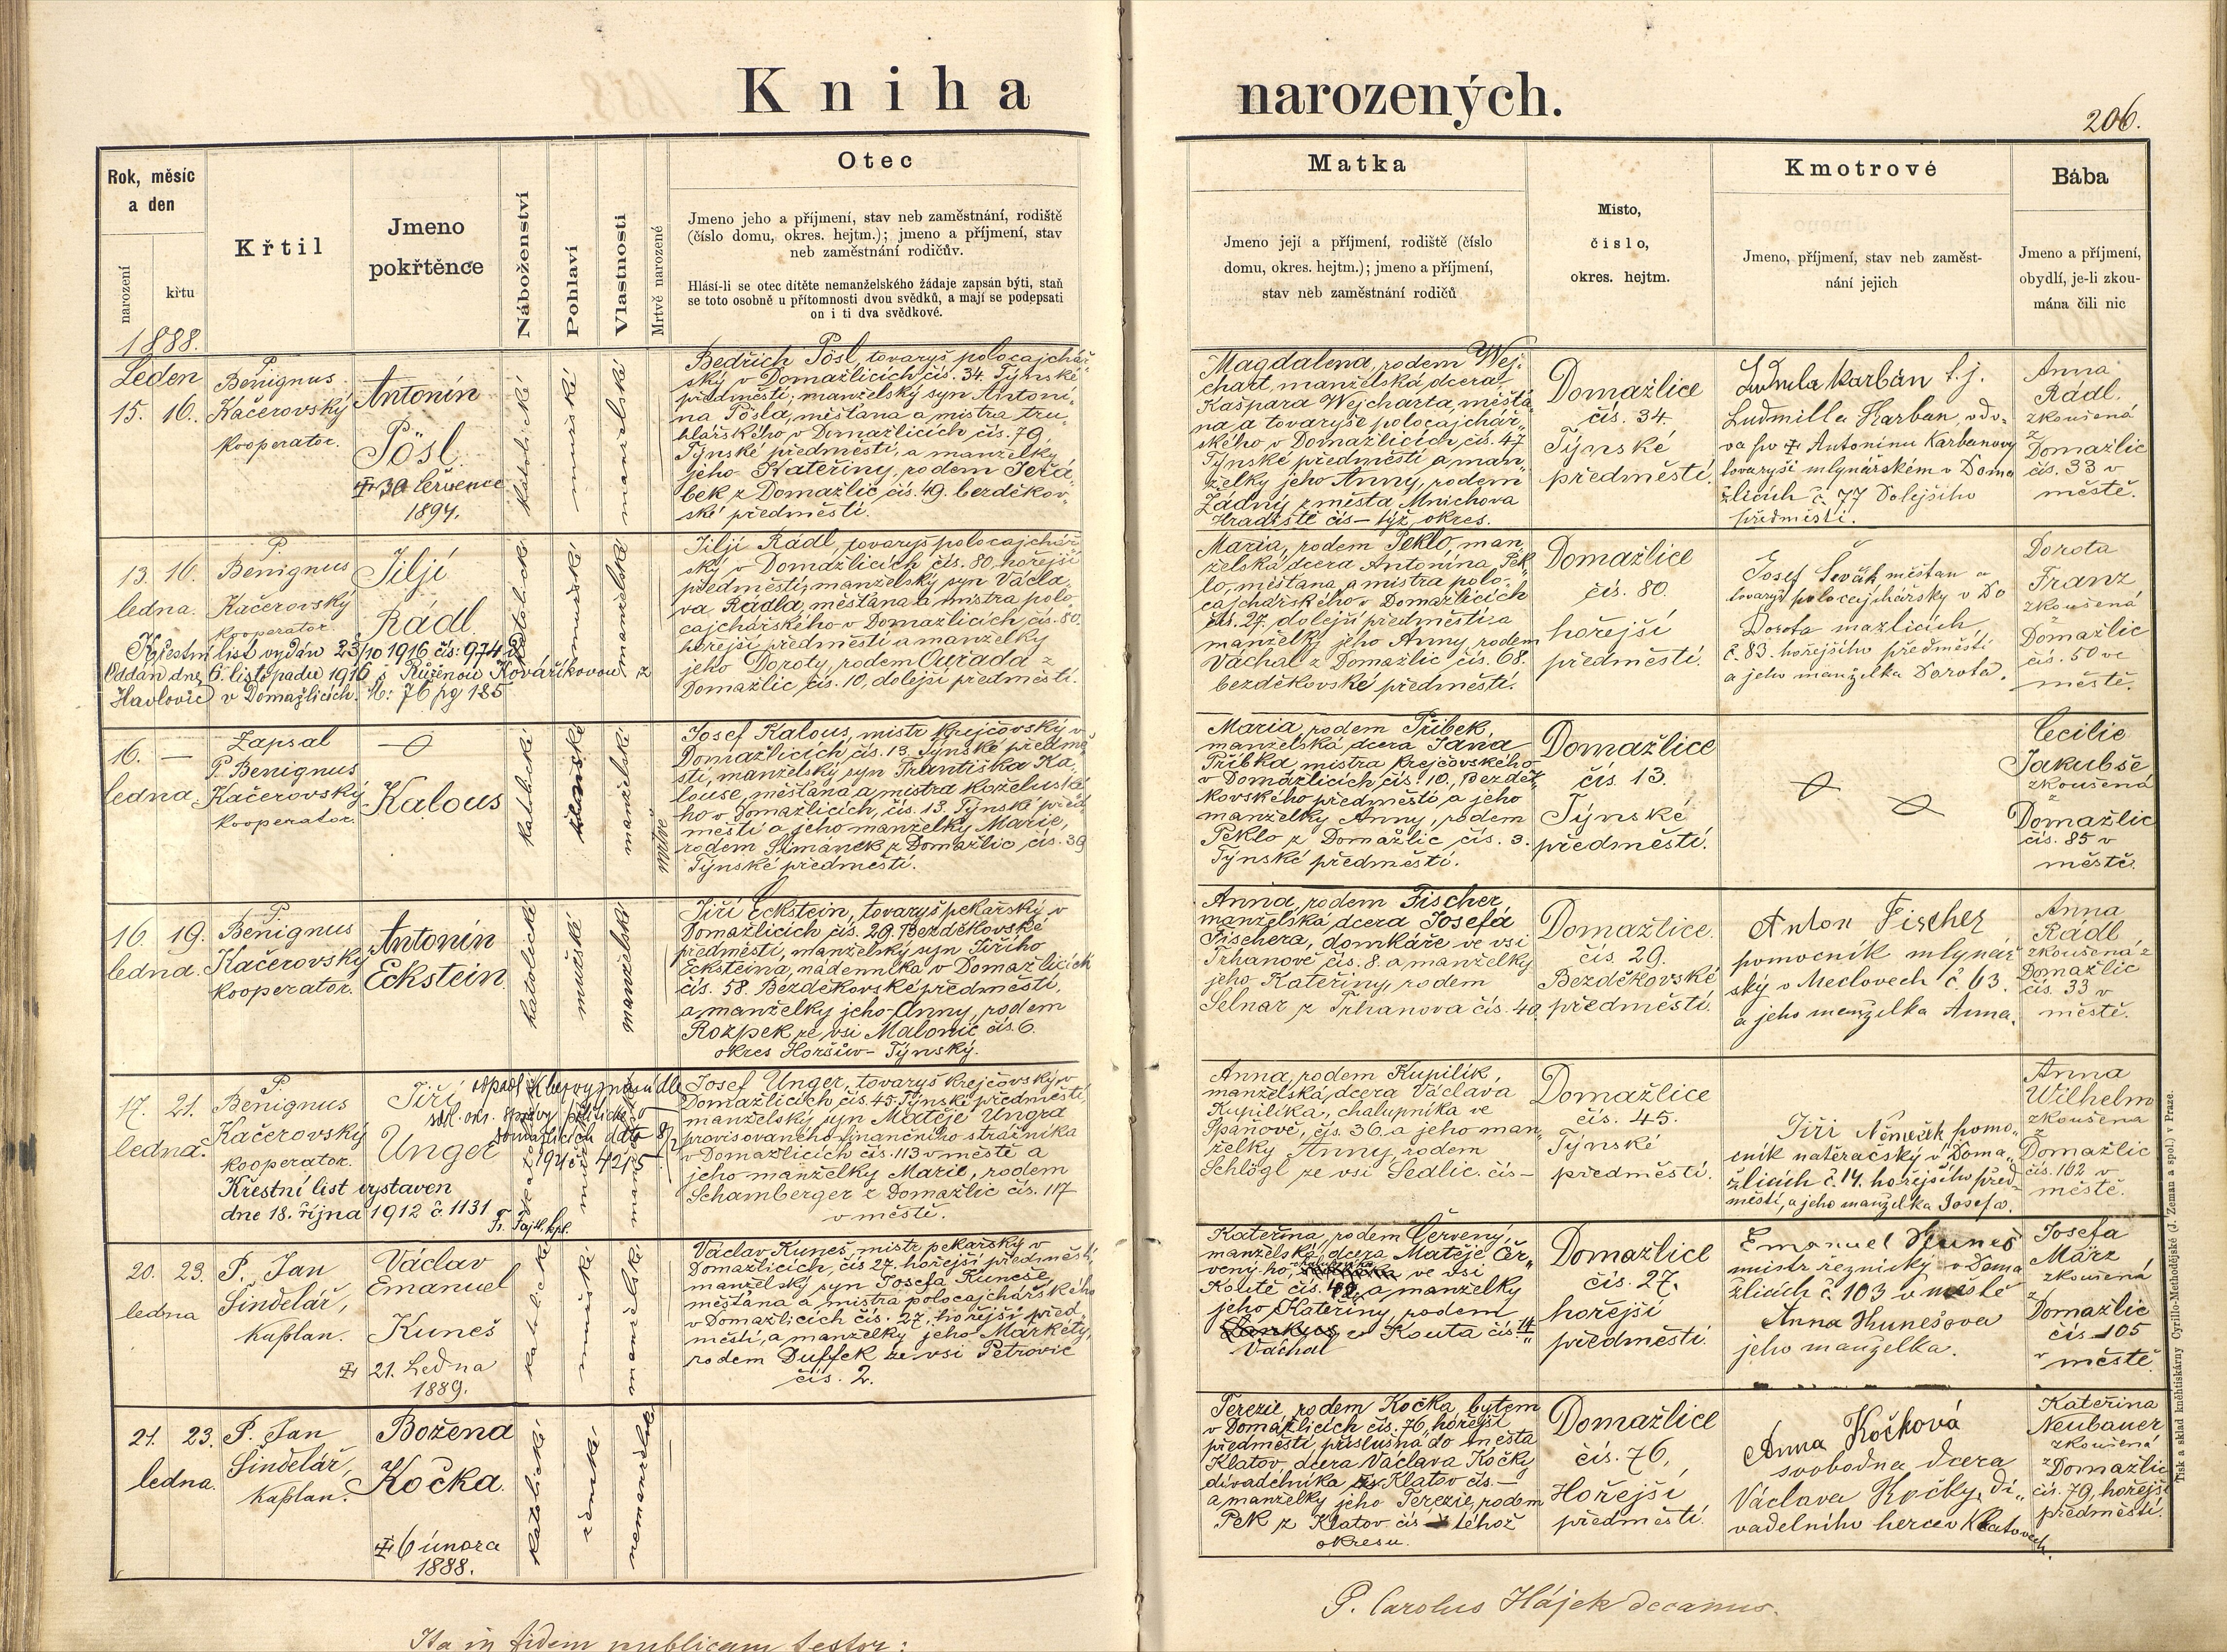 Kniha narozených.
206.
Rok, měsíc
a den
narození
křtu
Křtil
Jmeno
pokřtěnce
Náboženství
Pohlaví
Vlastnosti
Mrtvě narozené
Otec
Jmeno jeho a příjmení, stav neb zaměstnání, rodiště
(číslo domu, okres. hejtm.); jmeno a příjmení, stav
neb zaměstnání rodičův.
Hlásí-li se otec dítěte nemanželského žádaje zapsán býti, staň
se toto osobně u přítomnosti dvou svědků, a mají se podepsati
on i ti dva svědkové.
Matka
Jmeno její a příjmení, rodiště (číslo
domu, okres. hejtm.); jmeno a příjmení,
stav neb zaměstnání rodičů
Místo,
číslo,
okres. hejtm.
Kmotrové
Jmeno, příjmení, stav neb zaměst-
nání jejich
Bába
Jmeno a příjmení,
obydlí, je-li zkou-
mána čili nic
1888.
Leden
15. 16.
P.
Benignus
Kačerovský
kooperator.
Antonín
Pösl
30 července
1894.
katolické
mužské
manželské
Bedřich Pösl, tovaryš polocajchář
ský v Domažlicích čís. 34. Týnské
předměstí; manželský syn Antoní-
na Pösla, měšťana a mistra tru-
hlářského v Domažlicích čís. 79,
Týnské předměstí, a manželky
jeho Kateřiny, rodem Jeřá-
bek z Domažlic, čís. 49. bezděkov-
ské předměstí.
Magdalena, rodem Wej-
chart, manželská dcera
Kašpara Wejcharta, měšťa-
na a tovaryše polocajchář-
ského v Domažlicích čís. 47
Týnské předměstí a man-
želky jeho Anny, rodem
Žádný z města Mnichova
Hradiště čís — týž. okres.
Domažlice
čís. 34.
Týnské
předměstí.
Ludmila Karbán
Ludmilla Karban, vdo-
va po Antonínu Karbanovy
tovaryši mlynářském v Doma
žlicích č. 77 Dolejšího
předměstí.
Anna
Rádl.
zkoušená
z
Domažlic
čís. 33 v
městě.
13. 16.
ledna.
P.
Benignus
Kačerovský
kooperator
Jiljí
Rádl.
katolické
mužské
manželské
Křestní list vydán 23/10 1916 čís: 974
Oddán dne 6. listopadu 1916 s Růženou Kovaříkovou z
Havlovic v Domažlicích. 76 pg 185
Jiljí Rádl, tovaryš polocajchář
ský v Domažlicích čís. 80, hořejší
předměstí, manželský syn Václa-
va Rádla, měšťana a mistra polo-
cajchářského v Domažlicích čís. 80.
hořejší předměstí a manželky
jeho Doroty, rodem Ouřada z
Domažlic, čís. 10, dolejší předměstí.
Maria, rodem Peklo, man
želská dcera Antonína Pek
lo, měšťana a mistra polo-
cajchářského v Domažlicích
čís. 27. dolejší předměstí a
manželky jeho Anny rodem
Váchal z Domažlic čís. 68.
bezděkovské předměstí.
Domažlice
čís. 80.
hořejší
předměstí.
Josef Ševčík měšťan a
tovaryš polocajchářský v Do
Dorota mažlicích
č. 83. hořejšího předměstí
a jeho manželka Dorota.
Dorota
Franz
zkoušená
z
Domažlic
čís. 50 ve
městě.
16. —
ledna.
Zapsal
P. Benignus
Kačerovský
kooperator.
Kalous
katolické
manželské
mrtvě
Josef Kalous, mistr krejčovský v
Domažlicích čís. 13, Týnské předmě-
stí, manželský syn Františka Ka-
louse, měšťana a mistra koželužské
ho v Domažlicích, čís. 13, Týnské před-
městí a jeho manželky Marie,
rodem Šimanek z Domažlic čís. 39
Týnské předměstí.
Maria, rodem Přibek,
manželská dcera Jana
Přibka mistra krejčovského
v Domažlicích, čís. 10, Bezdě-
kovského předměstí, a jeho
manželky Anny, rodem
Peklo z Domažlic čís. 3.
Týnské předměstí.
Domažlice
čís 13.
Týnské
předměstí.
Cecilie
Jakubše
zkoušená
z
Domažlic
čís. 85 v
městě.
16. 19.
ledna.
P.
Benignus
Kačerovský
kooperator.
Antonín
Eckstein.
katolické
mužské
manželské
Jiří Eckstein, tovaryš pekařský v
Domažlicích čís. 29. Bezděkovské
předměstí, manželský syn Jiřího
Ecksteina, nádenníka v Domažlicích
čís. 58. Bezděkovské předměstí,
a manželky jeho Anny, rodem
Rozpek ze vsi Malonic čís. 6.
okres Horšův-Týnský.
Anna, rodem Fischer,
manželská dcera Josefa
Fischera, domkáře ve vsi
Trhanově čís. 8. a manželky
jeho Kateřiny, rodem
Selnar z Trhanova čís. 40.
Domažlice.
čís. 29.
Bezděkovské
předměstí.
Anton Fischer
pomocník mlynář
ský v Meclovech č. 63.
a jeho manželka Anna.
Anna
Rádl
zkoušená z
Domažlic
čís. 33 v
městě.
17. 21.
ledna.
P.
Benignus
Kačerovský
kooperator.
Jiří
Unger
Křestní list vystaven
dne 18. října 1912 č. 1131
manželské
Josef Unger, tovaryš krejčovský v
Domažlicích čís. 45, Týnské předměstí,
manželský syn Matěje Ungra
provisovaného finančního strážníka
v Domažlicích čís. 113 v městě a
jeho manželky Marie, rodem
Schamberger z Domažlic čís. 117
v městě.
Anna, rodem Kupilík,
manželská dcera Václava
Kupilíka, chalupníka ve
Spáňově, čís. 36. a jeho man-
želky Anny, rodem
Schlögl ze vsi Sedlic. čís —
Domažlice
čís. 45.
Týnské
předměstí.
Jiří Němeček pomo-
cník natěračský v Doma-
žlicích č. 14. hořejšího před-
městí, a jeho manželka Josefa.
Anna
Wilhelm
zkoušená
z
Domažlic
čís. 162 v
městě.
20. 23.
ledna
P. Jan
Šindelář,
kaplan.
Václav
Emanuel
Kuneš
21. Ledna
1889.
katolické
mužské
manželské
Václav Kuneš, mistr pekařský v
Domažlicích, čís 27. hořejší předměstí,
manželský syn Josefa Kuneše,
měšťana a mistra polocajchářského
v Domažlicích čís. 27. hořejší před-
městí, a manželky jeho Markéty,
rodem Duffek ze vsi Petrovic
čís. 2.
Kateřina, rodem Červený,
manželská dcera Matěje Čer-
veného, ve vsi
Koutě čís. a manželky
jeho Kateřiny rodem
z Kouta čís 14
Váchal
Domažlice
čís. 27.
hořejší
předměstí.
Emanuel Kuneš
mistr řeznický v Doma
žlicích č. 103 v městě
Anna Kunešova
jeho manželka.
Josefa
März
zkoušená
z
Domažlic
čís 105
v městě.
21. 23.
ledna.
P. Jan
Šindelář,
kaplan.
Božena
Kočka.
6 února
1888.
katolické
ženské.
nemanželské
Terezie, rodem Kočka, bytem
v Domažlicích čís. 76, hořejší
předměstí, příslušná do města
Klatov, dcera Václava Kočky
divadelníka z Klatov čís. —
a manželky jeho Terezie, rodem
Pek z Klatov čís — téhož
okresu.
Domažlice
čís. 76,
Hořejší
předměstí.
Anna Kočková
svobodna dcera
Václava Kočky, di-
vadelního herce v Klatovech.
Kateřina
Neubauer
zkoušená
z Domažlic
čís. 79, hořejší
předměstí.
P. Carolus Hájek decanus.
Ita in fidem publicam testor:
Tisk a sklad knihtiskárny Cyrillo-Methodějské (J. Zeman a spol.) v Praze.